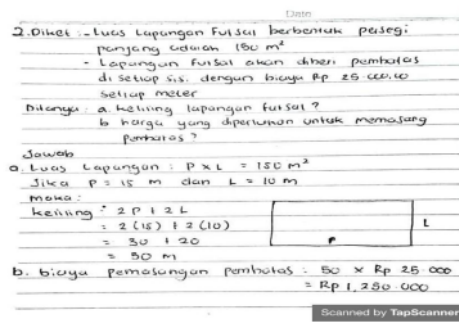 Date
2. Diket : - Luas Lapangan Futsal berbentuk persegi
panjang adalah 150 m²
- Lapangan Futsal akan diberi pembatas
di setiap sisi dengan biaya Rp 25.000.00
setiap meter
Ditanya : a. keliling lapangan futsal ?
b harga yang diperlukan untuk memasang
pembatas ?
Jawab
a. Luas Lapangan : P x L = 150 m²
Jika P = 15 m dan L = 10 m
maka :
keliling : 2 P + 2 L
: 2 (15) + 2 (10)
= 30 + 20
= 50 m
L
P
b. biaya pemasangan pembatas : 50 x Rp 25.000
= Rp 1,250.000
Scanned by TapScanner